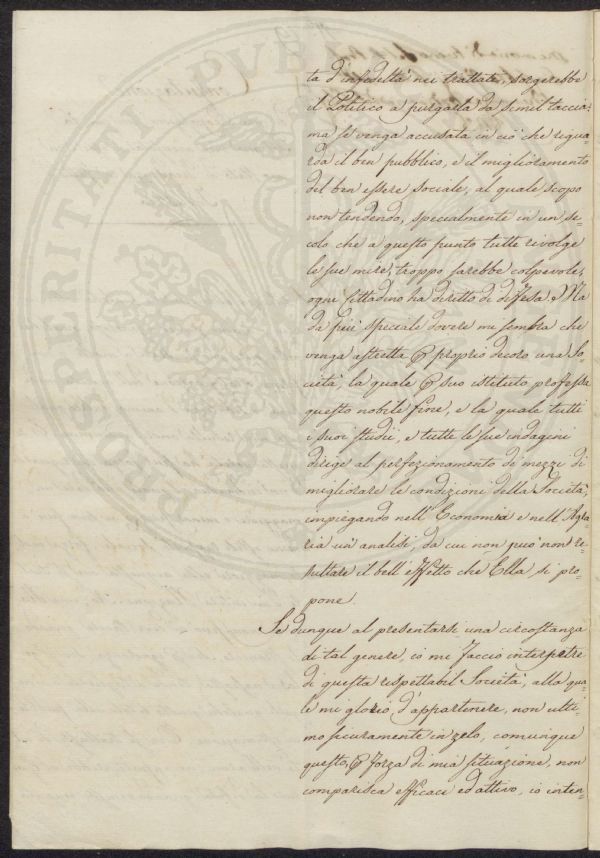 ta d'infedeltà nei trattati, sorgerebbe
il Politico a purgarla da simil taccia:
ma se venga accusata in ciò che regua=
rda il ben pubblico, e il miglioramento
del ben essere sociale, al quale scopo
non tendendo, specialmente in un se=
colo che a questo punto tutte rivolge
le sue mire, troppo sarebbe colpevole,
ogni Cittadino ha diritto di difesa. Ma
da più speciale dovere mi sembra che
venga astretta p proprio decoro una So
cietà, la quale p suo istituto professa
questo nobile fine, e la quale tutti
i suoi studii, e tutte le sue indagini
dirige al perfezionamento di mezzi di
migliorare le condizioni della Società,
impiegando nell'Economia e nell'Agra
ria un'analisi, da cui non può non re=
sultare il bell'effetto che Ella si pro=
pone.
Se dunque al presentarsi una circostanza
di tal genere, io mi faccio interpetre
di questa rispettabil Società, alla qua=
le mi glorio d'appartenere, non ulti=
mo sicuramente in zelo, comunque
questo, p forza di mia situazione, non
comparisca efficace ed attivo, io inten=
PROSPERITATI PUB